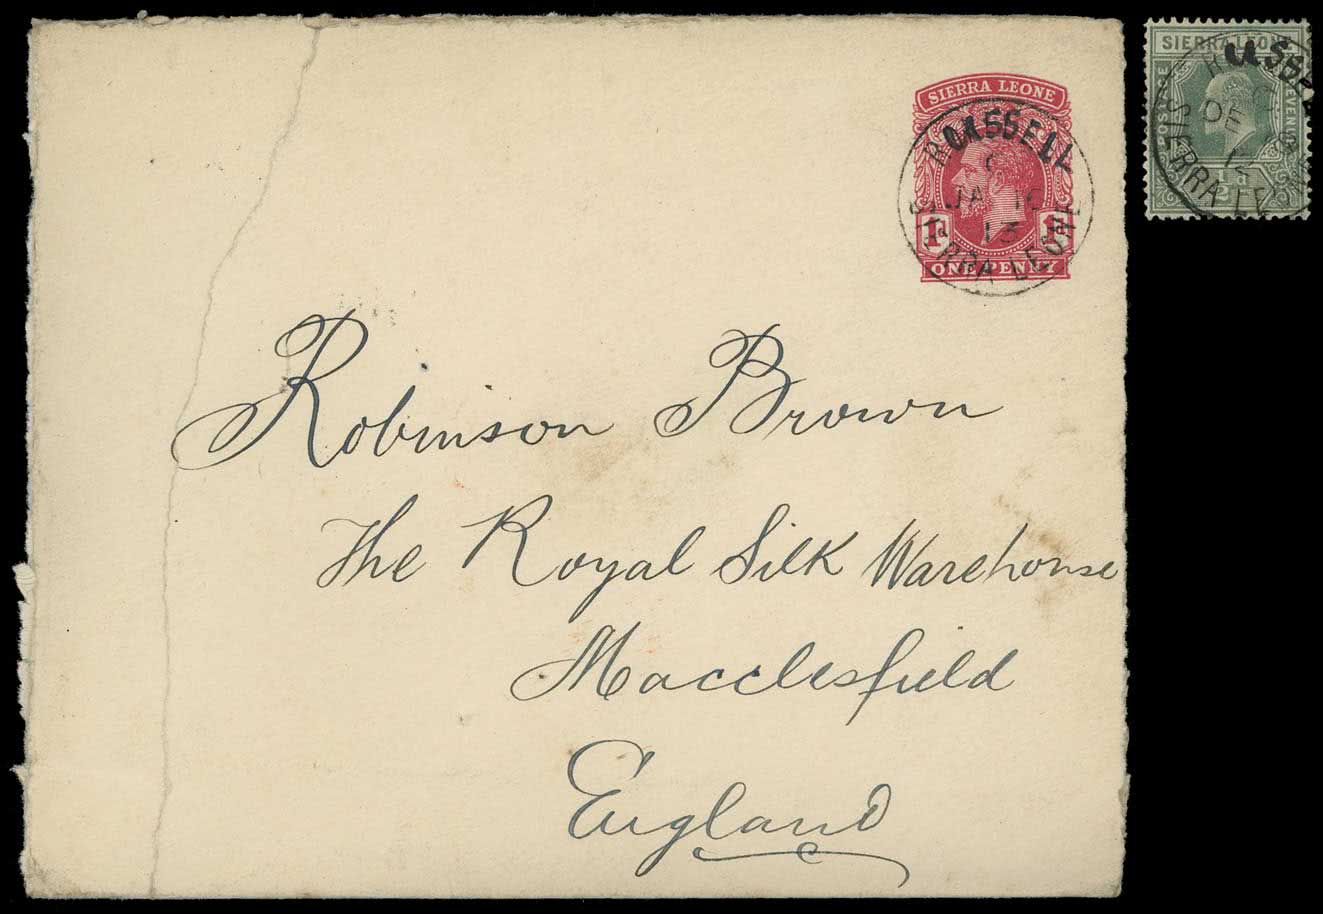 SIERRA LEONE
RUSSELL
C
JA 16
13
SIERRA LEONE
1D 1D
ONE PENNY
Robinson Brown
The Royal Silk Warehouse
Macclesfield
England
SIERRA LEONE
POSTAGE REVENUE
RUSSELL
C
DE
12
SIERRA LEONE
½d